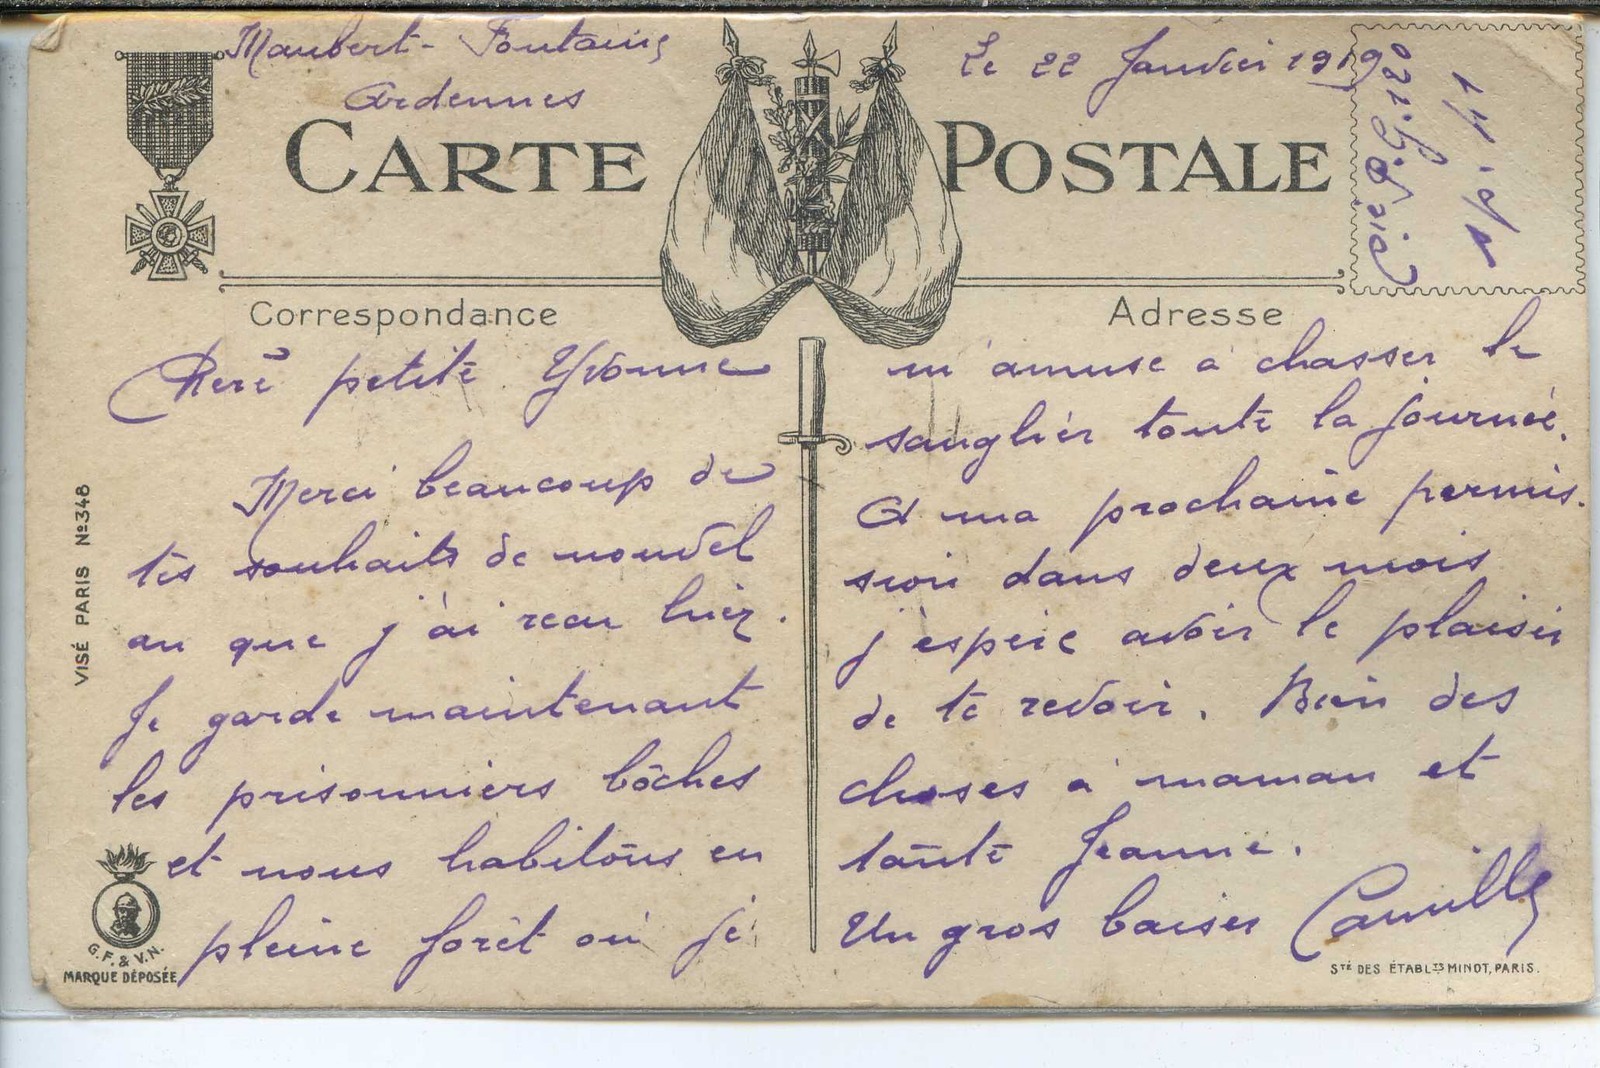 Maubert-Fontaine
Ardennes
Le 22 Janvier 1919
CARTE POSTALE
Correspondance
Adresse
Chère petite Yvonne
Merci beaucoup de
tes souhaits de nouvel
an que j'ai reçu hier.
Je garde maintenant
les prisonniers bôches
et nous habitons en
pleine forêt où je
m'amuse à chasser le
sanglier toute la journée.
A ma prochaine permis-
sion dans deux mois
j'espère avoir le plaisir
de te revoir. Bien des
choses à maman et
tante Jeanne.
Un gros baiser Camille
VISÉ PARIS Nº 348
G.F. & V.N.
MARQUE DÉPOSÉE
STÉ DES ÉTABLTS MINOT, PARIS.